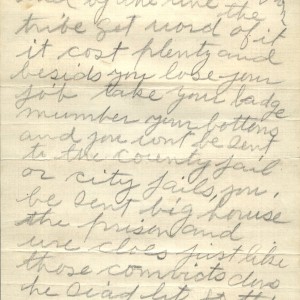 and by the time the
tribe get word of it
it cost plenty and
besids you lose your
job take your badge
mumber your bottons
and you wont be sent
to the county jail
or city jails, you
be sent big house
the prison and
ure cloes just like
those convicts dus
he siad